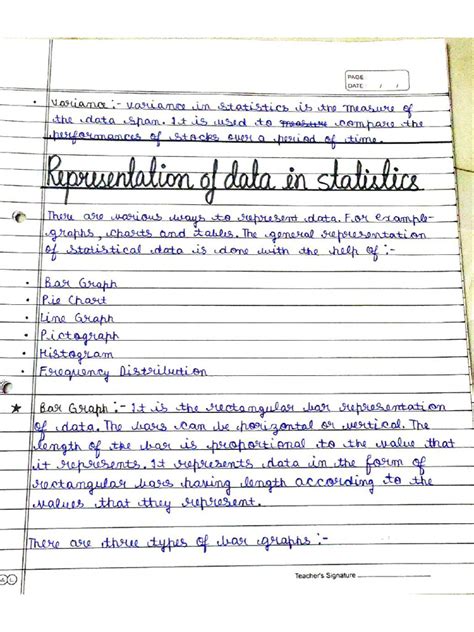 PAGE
DATE / /
• Variance :- Variance in statistics is the measure of
the data span. It is used to measure compare the
performances of stocks over a period of time.
Representation of data in statistics
There are various ways to represent data. For example-
graphs, charts and tables. The general representation
of statistical data is done with the help of :-
• Bar Graph
• Pie Chart
• Line Graph
• Pictograph
• Histogram
• Frequency Distribution
★ Bar Graph :- It is the rectangular bar representation
of data. The bars can be horizontal or vertical. The
length of the bar is proportional to the value that
it represents. It represents data in the form of
rectangular bars having length according to the
values that they represent.
There are three types of bar graphs :-
Teacher's Signature